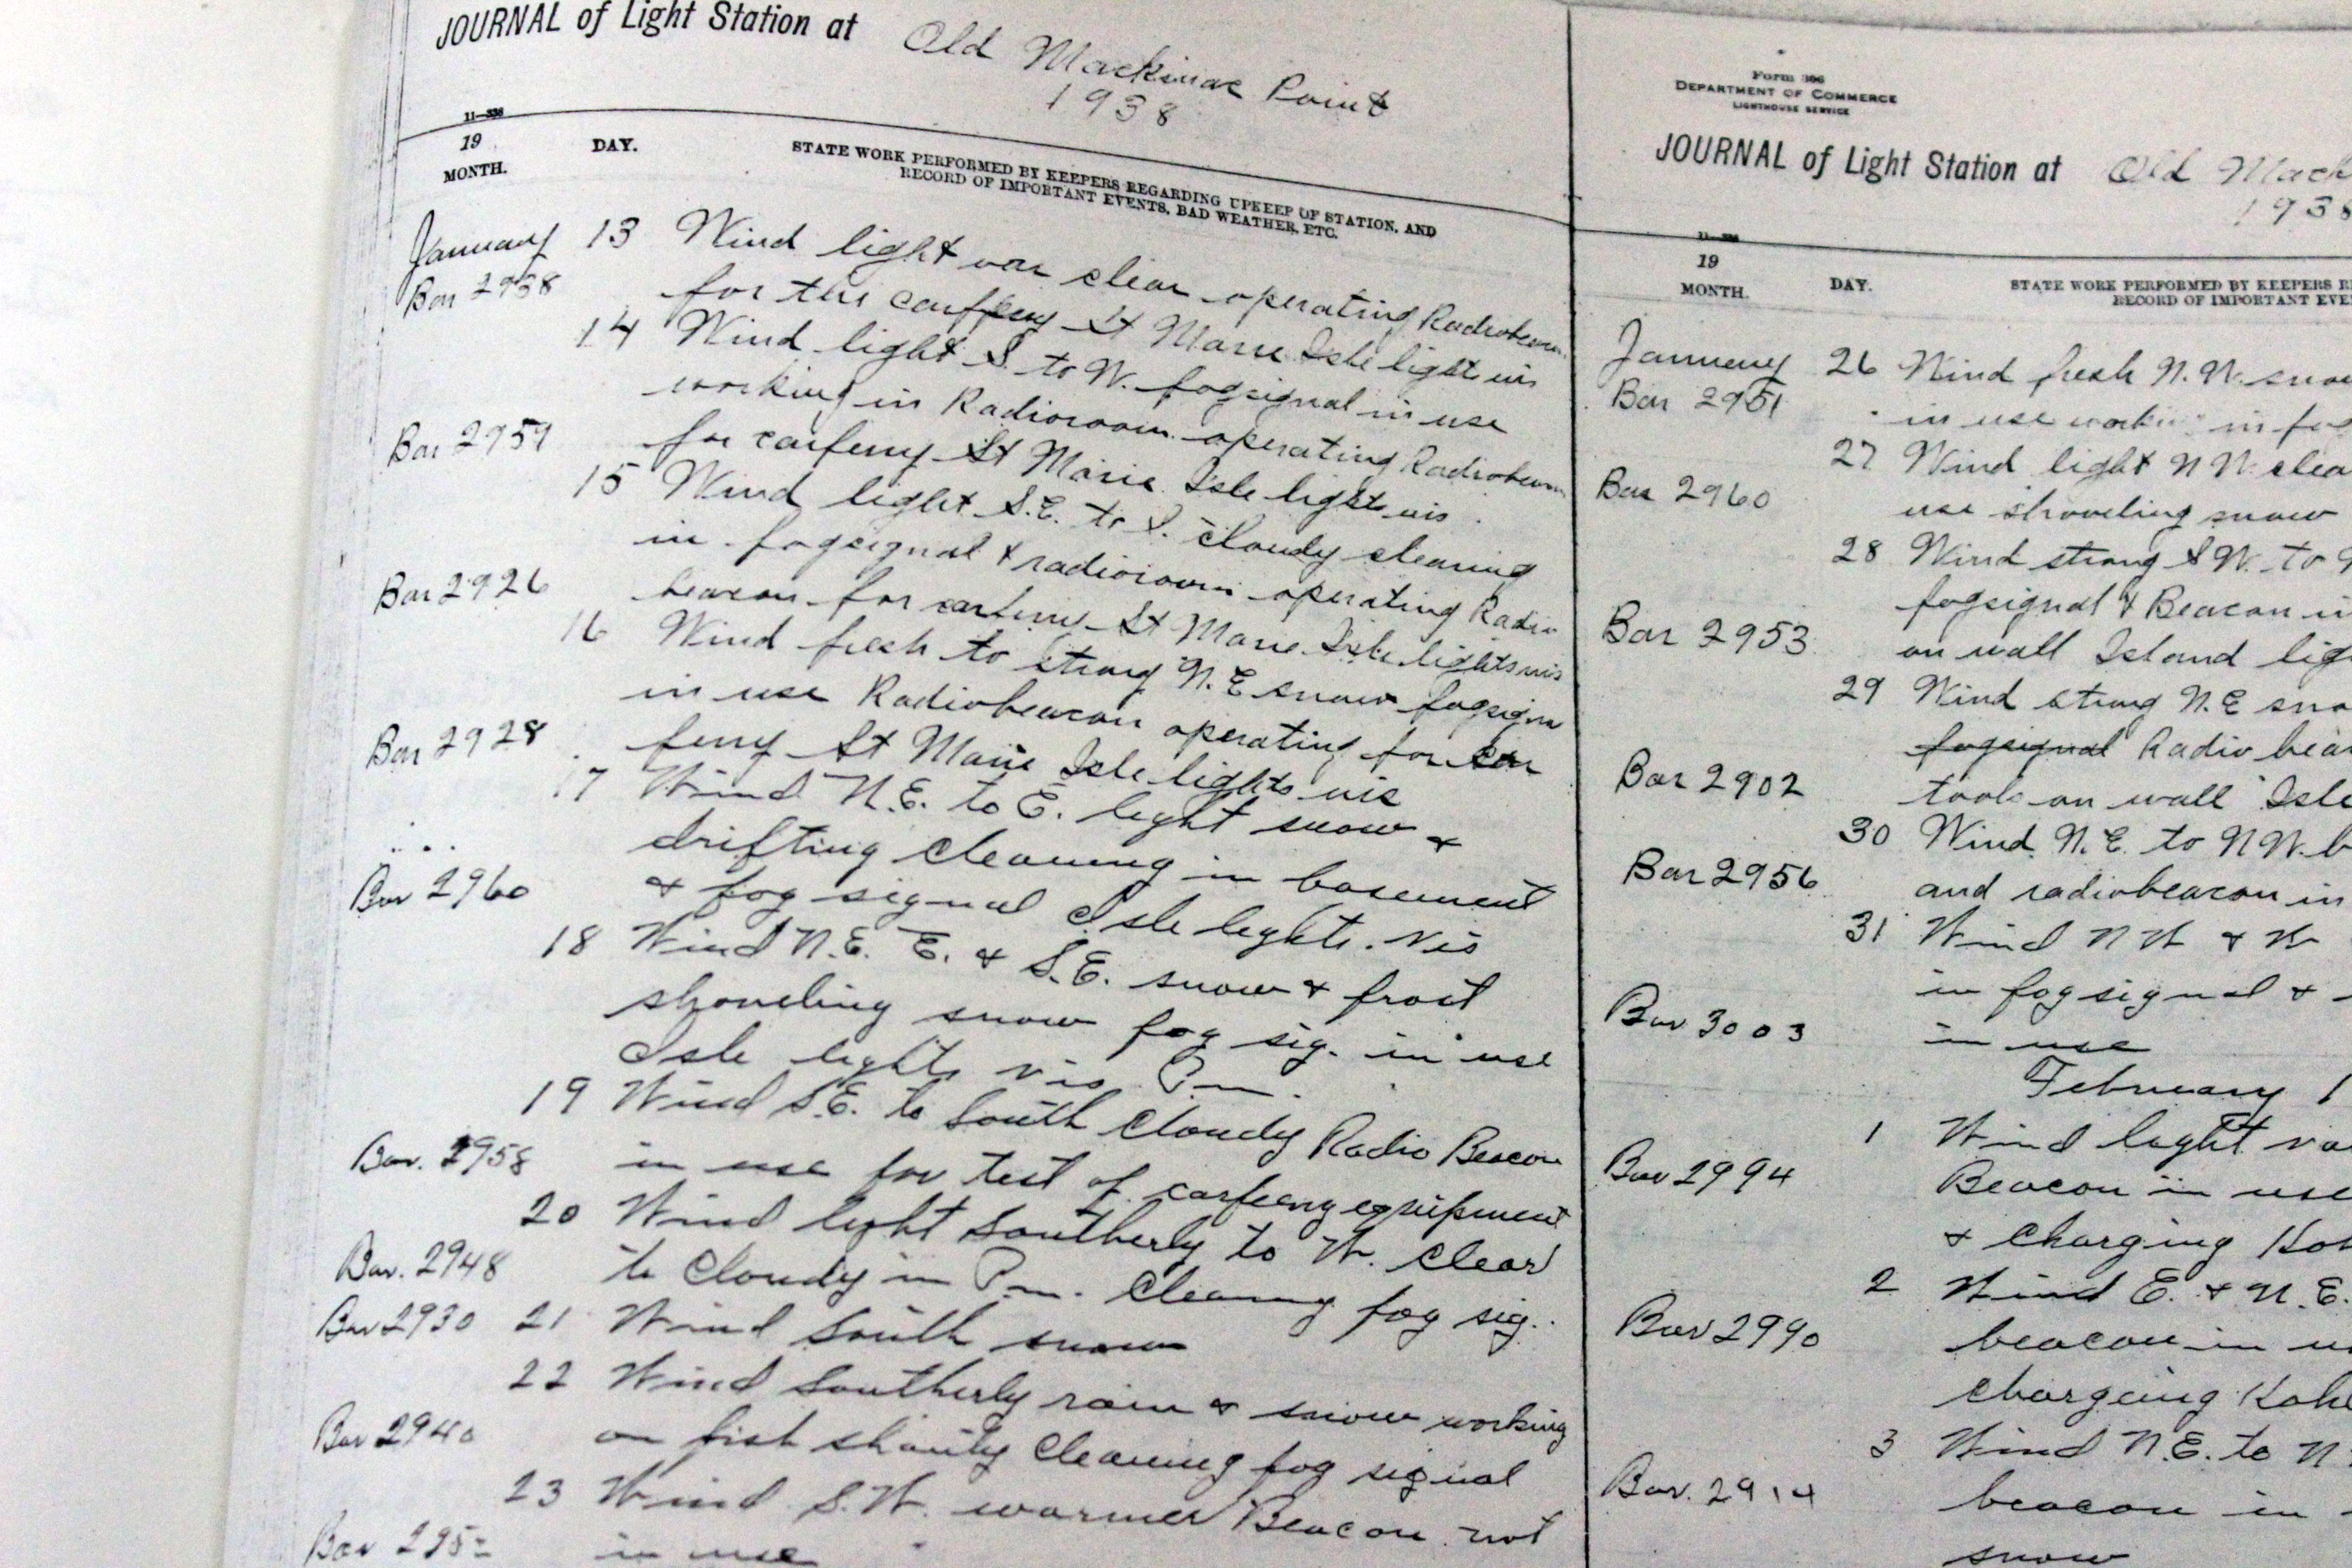 JOURNAL of Light Station at Old Mackinac Point
1938
19
MONTH.
DAY.
STATE WORK PERFORMED BY KEEPERS REGARDING UPKEEP OF STATION, AND
RECORD OF IMPORTANT EVENTS, BAD WEATHER, ETC.
January 13 Wind light var clear operating Radiobeacon
Bar 2938
for the carferry St Marie Isle lights vis
14 Wind light S. to W. fogsignal in use
working in Radioroom operating Radiobeacon
Bar 2959 for carferry St Marie Isle lights vis
15 Wind light S.E. to S. cloudy cleaning
in fogsignal & radioroom operating Radio
Bar 2926 beacon for carferry St Marie Isle lights vis
16 Wind fresh to strong N.E snow fogsign
in use Radiobeacon operating for car
Bar 2928 ferry St Marie Isle lights vis
17 Wind N.E. to E. light snow &
drifting cleaning in basement
Bar 2960 & fog signal Isle lights. vis
18 Wind N.E. E. & S.E. snow & frost
shoveling snow fog sig. in use
Isle lights vis Pm.
19 Wind S.E. to South Cloudy Radio Beacon
Bar. 2958 in use for test of carferry equipment
20 Wind light Southerly to W. Clear
Bar. 2948 to Cloudy in Pm. Cleaning fog sig.
Bar 2930 21 Wind South snow
22 Wind Southerly rain & snow working
Bar 2940 on fish shanty Cleaning fog signal
23 Wind S.W. warmer Beacon not
Bar 295 in use
Form 306
DEPARTMENT OF COMMERCE
LIGHTHOUSE SERVICE
JOURNAL of Light Station at Old Mack
1938
19
MONTH.
DAY.
STATE WORK PERFORMED BY KEEPERS R
RECORD OF IMPORTANT EVE
January 26 Wind fresh N.W. snow
Bar 2951 in use workin in fog
27 Wind light N W clea
Bar 2960 use shoveling snow
28 Wind strong S W. to
fogsignal & Beacon in
Bar 2953 on wall Island lig
29 Wind strong N.E sno
fogsignal Radio bea
Bar 2902 took on wall Isle
30 Wind N.E. to N W. b
Bar 2956 and radiobeacon in
31 Wind N W & W
in fog signal &
Bar 3003 in use
February 1
1 Wind light va
Bar 2994 Beacon in use
& Charging Koh
2 Wind E. & N.E.
Bar 2990 beacon in u
chargeing Kohl
3 Wind N.E. to N
Bar. 2914 beacon in
snow